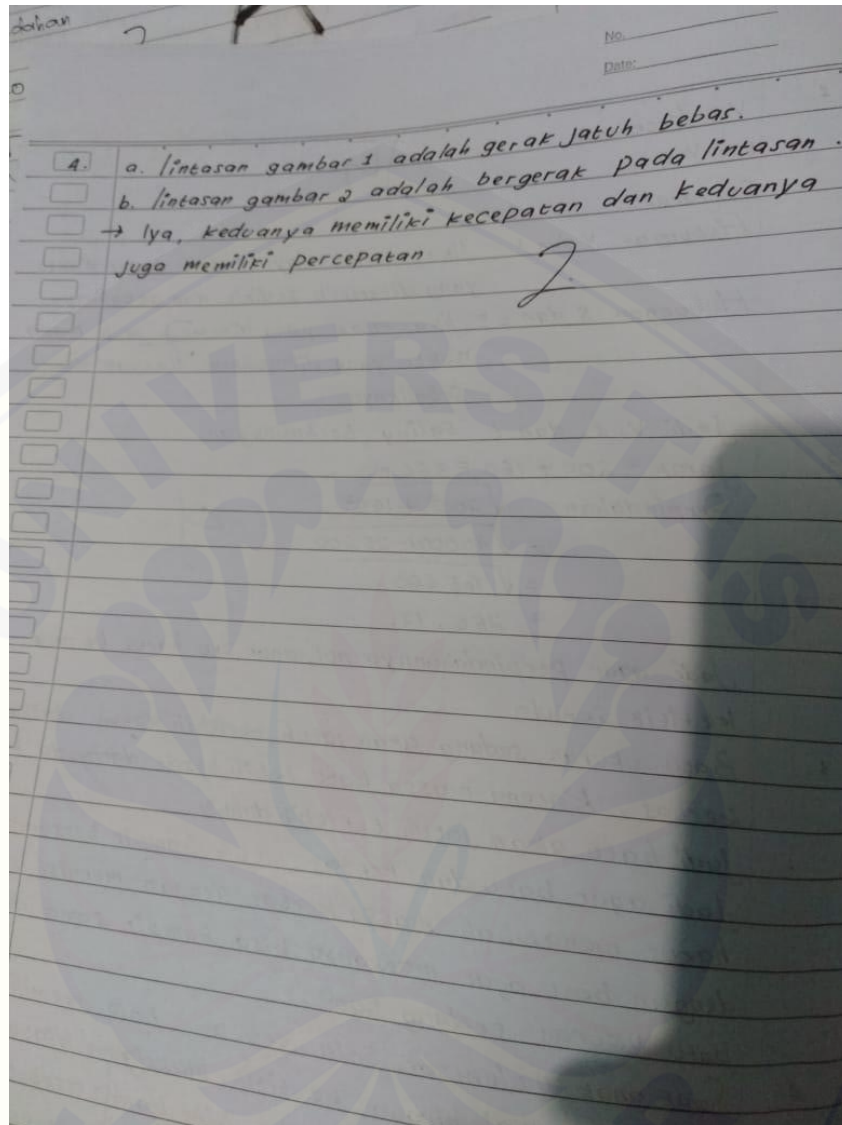 dahan
2
No.
Date:
4. a. lintasan gambar 1 adalah gerak jatuh bebas.
b. lintasan gambar 2 adalah bergerak pada lintasan.
→ Iya, keduanya memiliki kecepatan dan keduanya
juga memiliki percepatan
2
UNIVERSITAS